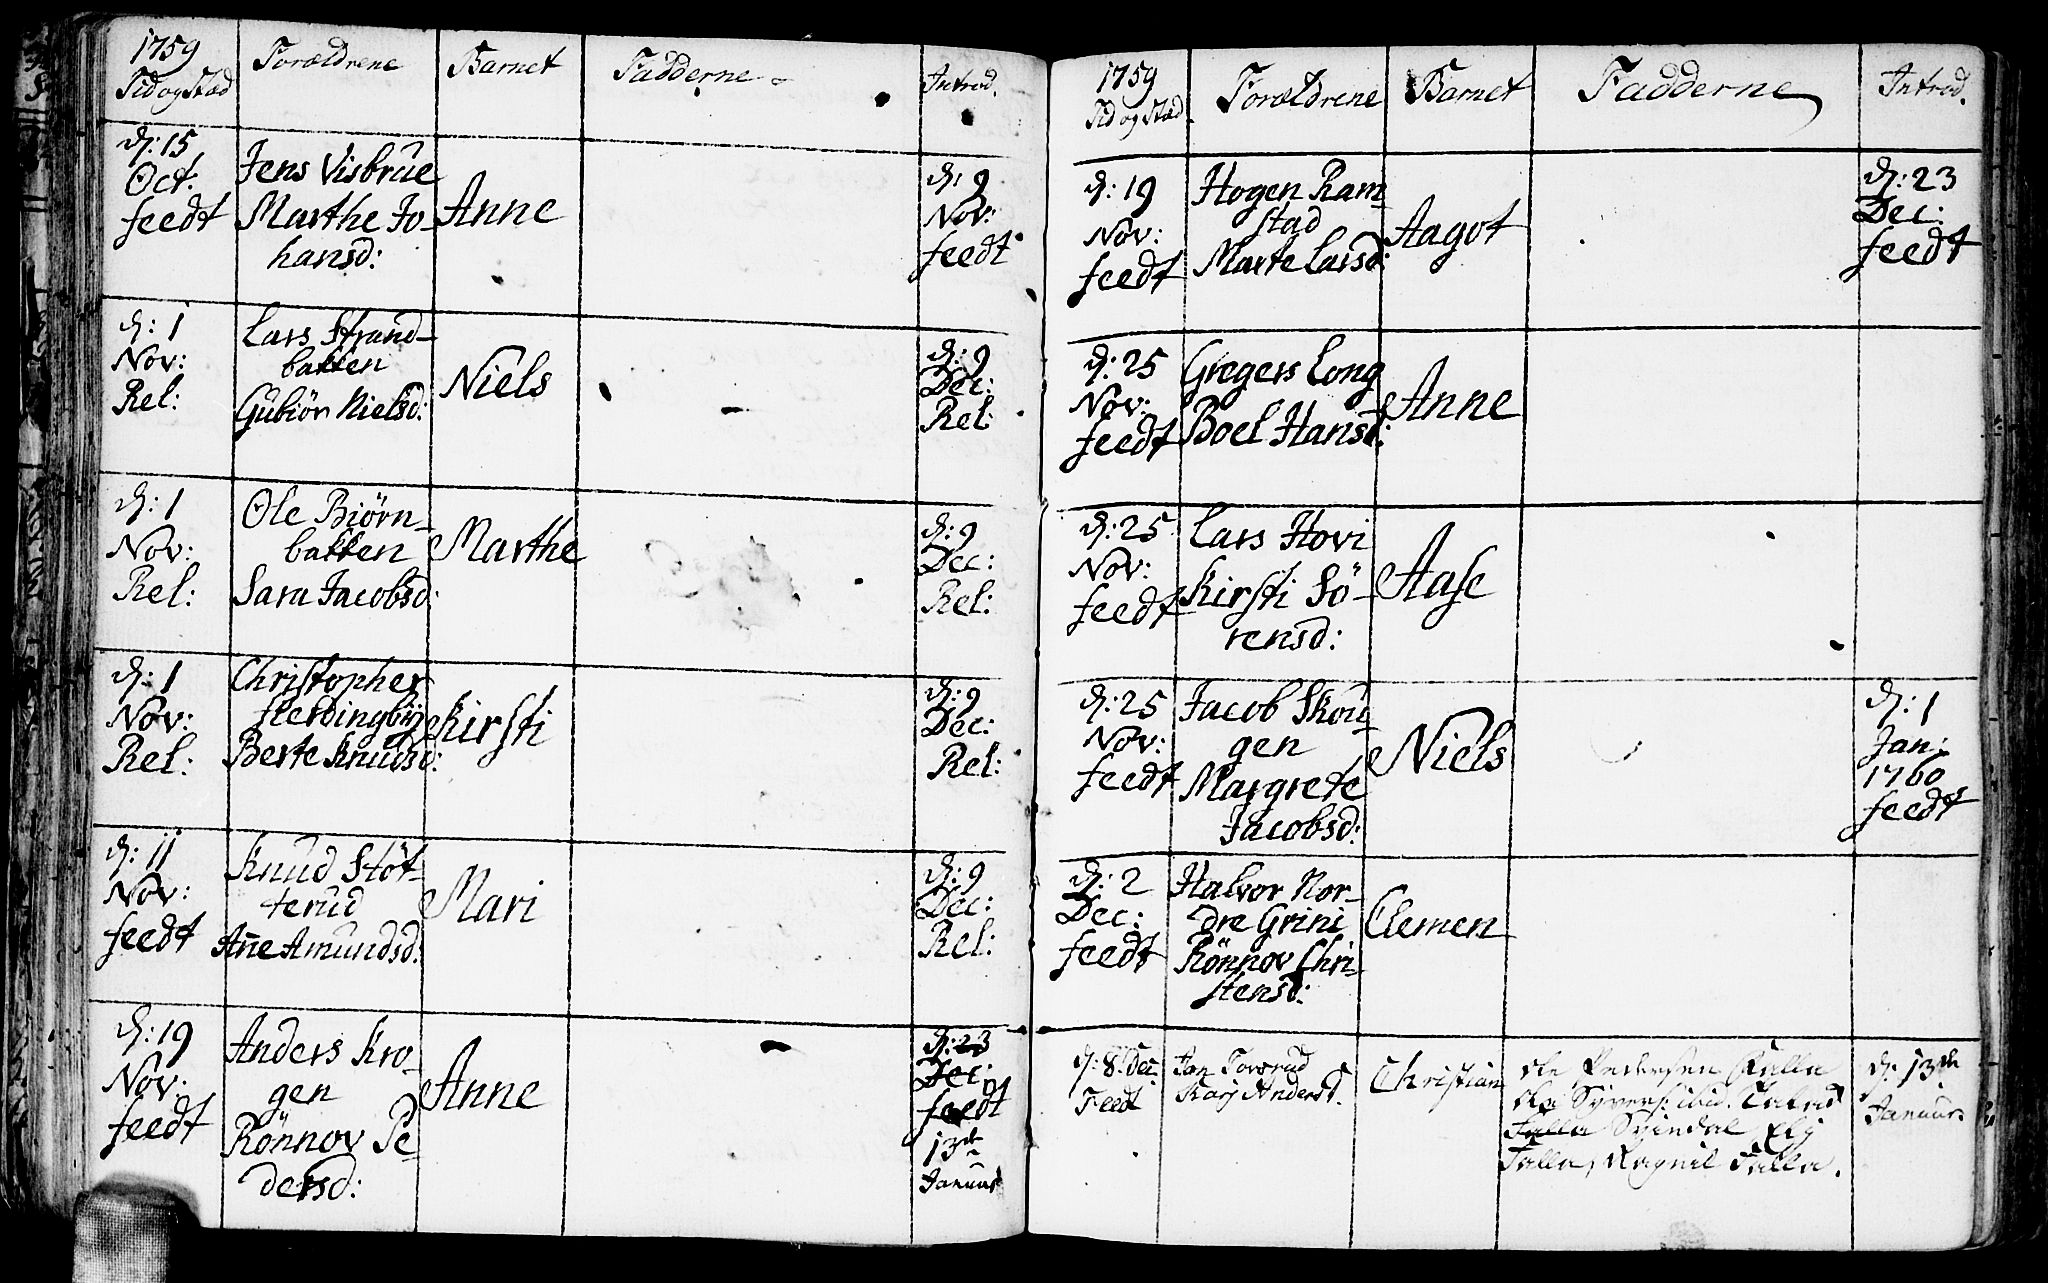 1759
Tid og Stæd
Forældrene
Barnet
Fadderne
Introd.
d: 15
Oct.
feedt
Jens Visbrue
Marthe Jo-
hansd:
Anne
d: 9
Nov:
feedt
d: 1
Nov:
Rel:
Lars Strand-
bakken
Gubiör Nielsd:
Niels
d: 9
Dec:
Rel:
d: 1
Nov:
Rel:
Ole Biørn-
bakken
Sara Jacobsd:
Marthe
d: 9
Dec:
Rel:
d: 1
Nov:
Rel:
Christopher
Berte Knudsd:
Kirsti
d: 9
Dec:
Rel:
d: 11
Nov:
feedt
Knud Stöt-
terud
Añe Amundsd:
Mari
d: 9
Dec:
Rel:
d: 19
Nov:
feedt
Anders Kro-
gen
Rönnov Pe-
dersd:
Anne
d: 23
Dec:
feedt
13de
Januar
1759
Tid og Stæd.
Forældrene
Barnet
Fadderne
Introd.
d: 19
Nov:
feedt
Hogen Ram-
stad
Marte Larsd:
Aagot
d: 23
Dec:
feedt
d: 25
Nov:
feedt
Gregers Long
Boel Hansd:
Anne
d: 25
Nov:
feedt
Lars Hovi
Kirsti Sö-
rensd:
Aase
d: 25
Nov:
feedt
Jacob Skou-
gen
Margrete
Jacobsd:
Niels
d: 1
Jan:
1760
feedt
d: 2
Dec:
feedt
Halvor Nor-
dre Grini
Rönnov Chri-
stensd:
Clemen
d: 8 Dec:
Feedt
Jan Forsrud
Kari Andersd.
Christian
Ole Pedersen Falla
Ole Syvers: ibid.
Falla
Falla, Ragnil Falla.
d: 13de
Januar